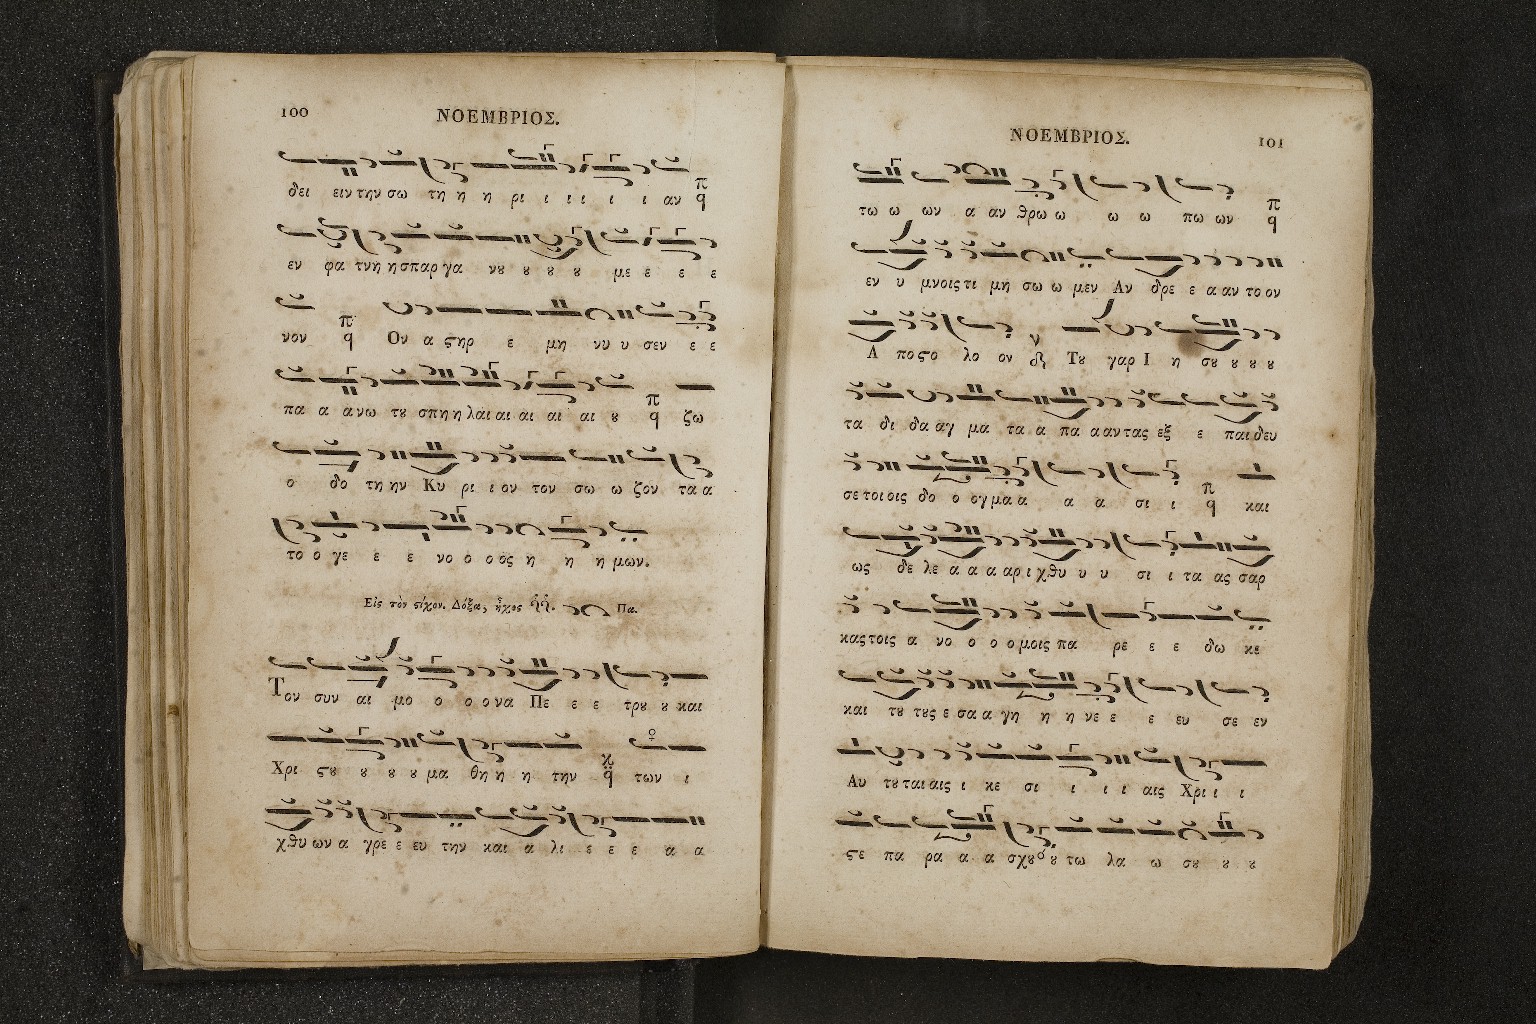 100 ΝΟΕΜΒΡΙΟΣ.
δει ειν την σω τη η η ρι ι ι ι ι ι αν
εν φα τνη η σπαρ γα νȣ ȣ ȣ ȣ με ε ε ε
νον Ον α ϛηρ ε μη νυ υ σεν ε ε
πα α α νω τȣ σπη η λαι αι αι αι αι ȣ ζω
ο δο τη ην Κυ ρι ι ον τον σω ω ζον τα α
το ο γε ε ε νο ο ο ος η η η μων.
Εἰς τὸν ϛίχον. Δόξα, ἦχος Πα.
Τον συν αι μο ο ο ο να Πε ε ε τρȣ ȣ και
Χρι ϛȣ ȣ ȣ ȣ μα θη η η την των ι
χθυ ων α γρε ε ευ την και α λι ε ε ε α α
ΝΟΕΜΒΡΙΟΣ. 101
τω ω ων α αν θρω ω ω ω πω ων
εν υ μνοις τι μη σω ω μεν Αν δρε ε α αν το ον
Α πο ϛο λο ον Τȣ γαρ Ι η σȣ ȣ ȣ ȣ
τα δι δα αγ μα τα α πα α αν τας εξ ε παι δευ
σε τοι οις δο ο ογ μα α α α σι ι και
ως δε λε α α α αρ ι χθυ υ υ σι ι τα ας σαρ
κας τοις α νο ο ο ο μοις πα ρε ε ε δω κε
και τȣ τȣς ε σα α γη η η νε ε ε ευ σε εν
Αυ τȣ ται αις ι κε σι ι ι ι αις Χρι ι ι
ϛε πα ρα α α σχȣ ȣ τω λα ω σȣ ȣ ȣ